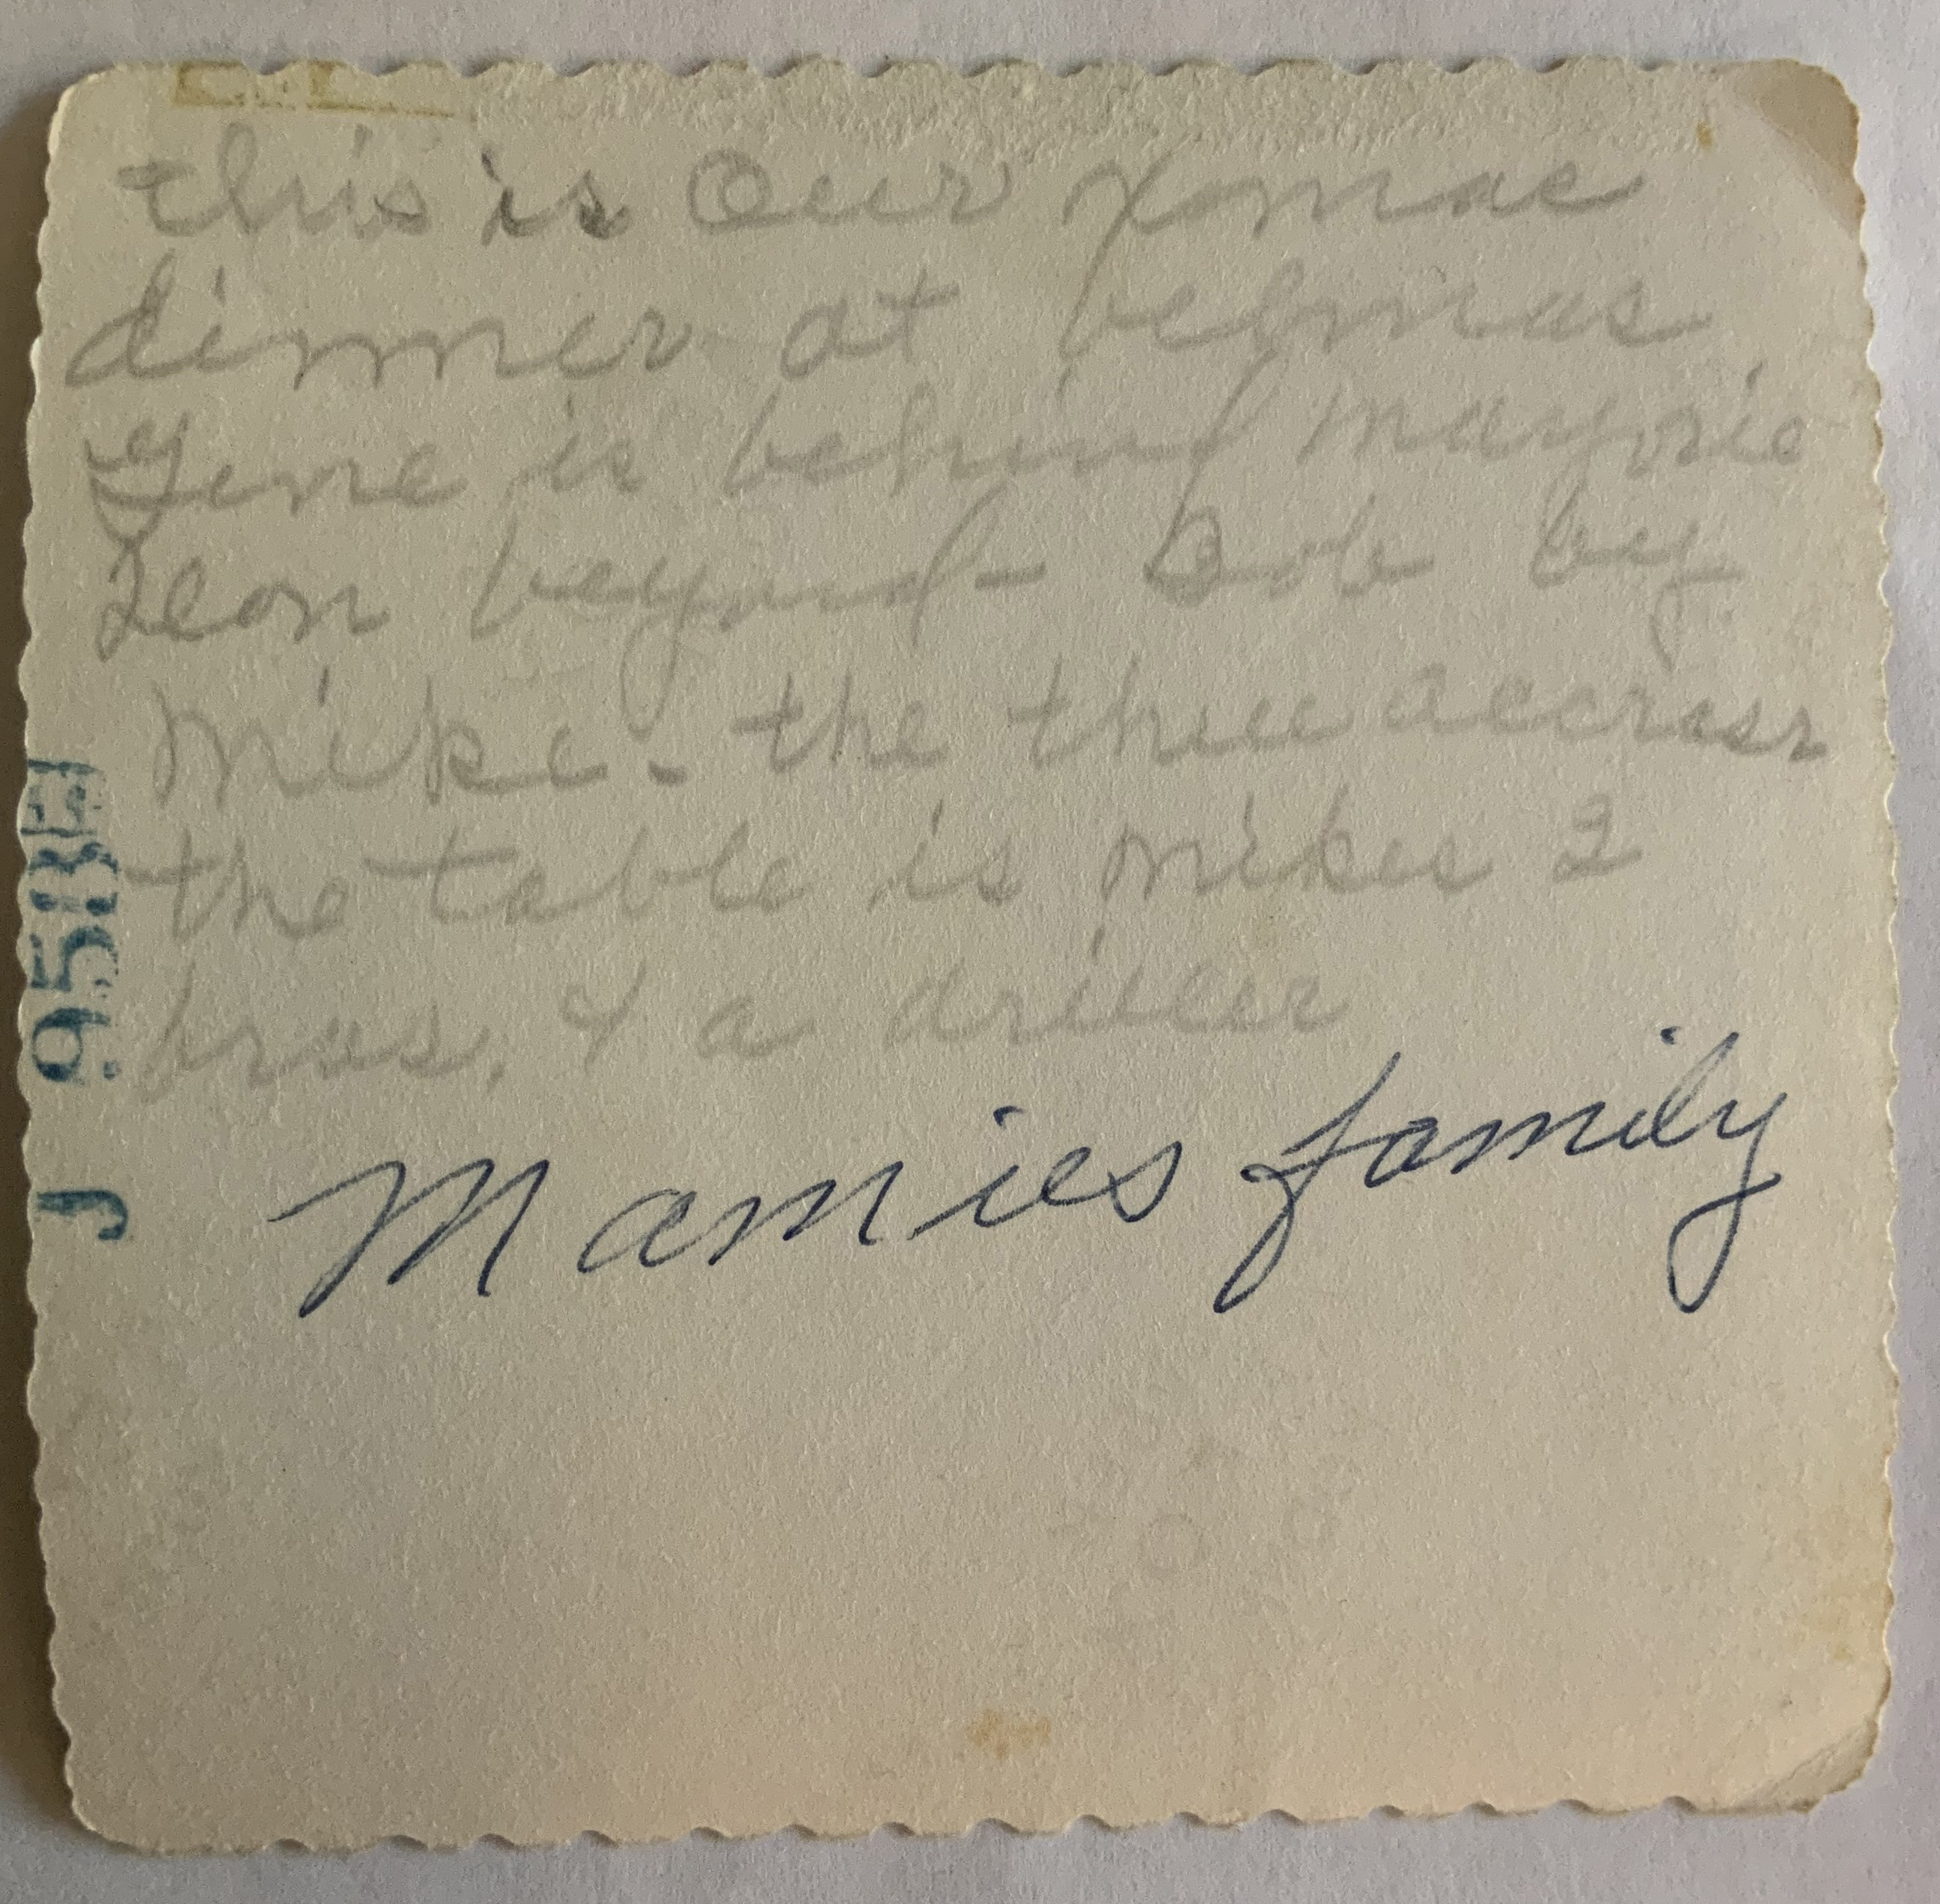 this is Our xmas
dinner at velmas
Gene is behind Marjorie
Leon beyond - Bob by
Mike - the three accross
the table is Mikes 2
bros. & a driver
Mamies family
J 958